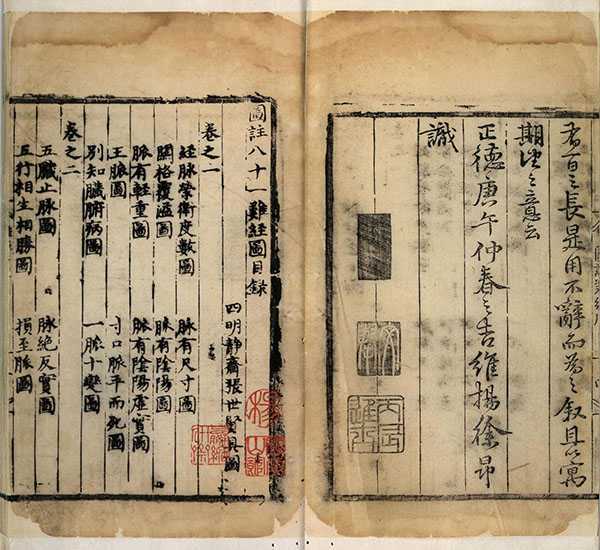 百之長是用不辭而為之叙且以寓
期望之意云
正德庚午仲春之吉維揚徐昂
識
圖註八十一難經圖目錄
四明靜齋張世賢具圖
卷之一
經脉榮衛度數圖 脉有尺寸圖
關格覆溢圖 脉有陰陽圖
脉有輕重圖 脉有陰陽虛實圖
王脉圖 寸口脉平而死圖
別知臟腑病圖 一脉十變圖
卷之二
五臟止脉圖 脉絕反實圖
五行相生相勝圖 損至脉圖